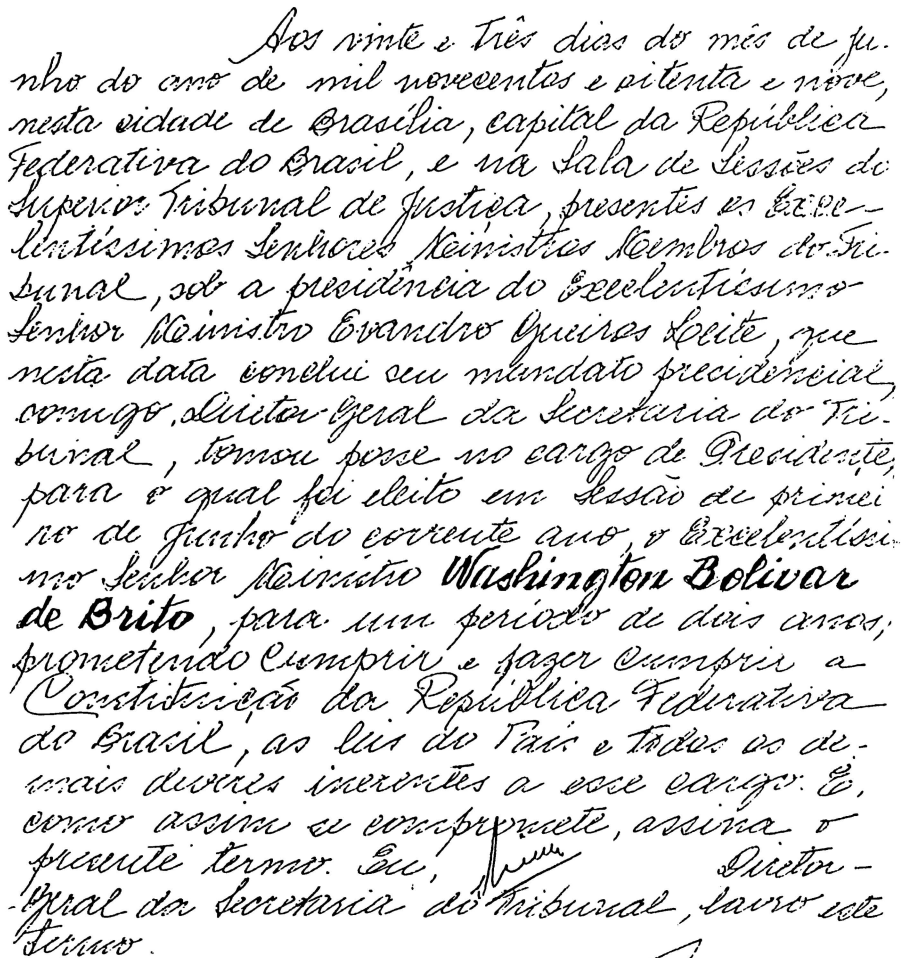 Aos vinte e três dias do mês de ju-
nho do ano de mil novecentos e oitenta e nove,
nesta cidade de Brasília, capital da República
Federativa do Brasil, e na Sala de Sessões do
Superior Tribunal de Justiça, presentes os Exce-
lentíssimos Senhores Ministros Membros do Tri-
bunal, sob a presidência do Excelentíssimo
Senhor Ministro Evandro Gueiros Leite, que
nesta data conclui seu mandato presidencial,
comigo, Diretor-Geral da Secretaria do Tri-
bunal, tomou posse no cargo de Presidente,
para o qual foi eleito em Sessão de primei
ro de Junho do corrente ano, o Excelentíssi-
mo Senhor Ministro Washington Bolivar
de Brito, para um período de dois anos,
prometendo Cumprir e fazer Cumprir a
Constituição da República Federativa
do Brasil, as leis do País e todos os de-
mais deveres inerentes a esse cargo. E,
como assim se compromete, assina o
presente termo. Eu, Diretor-
Geral da Secretaria do Tribunal, lavro este
termo.